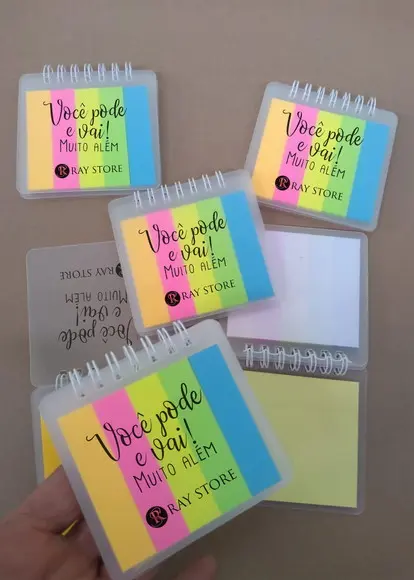 Você pode
e vai!
MUITO ALÉM
RAY STORE
Você pode
e vai!
MUITO ALÉM
RAY STORE
Você pode
e vai!
MUITO ALÉM
RAY STORE
Você pode
e vai!
MUITO ALÉM
RAY STORE
Você pode
e vai!
MUITO ALÉM
RAY STORE